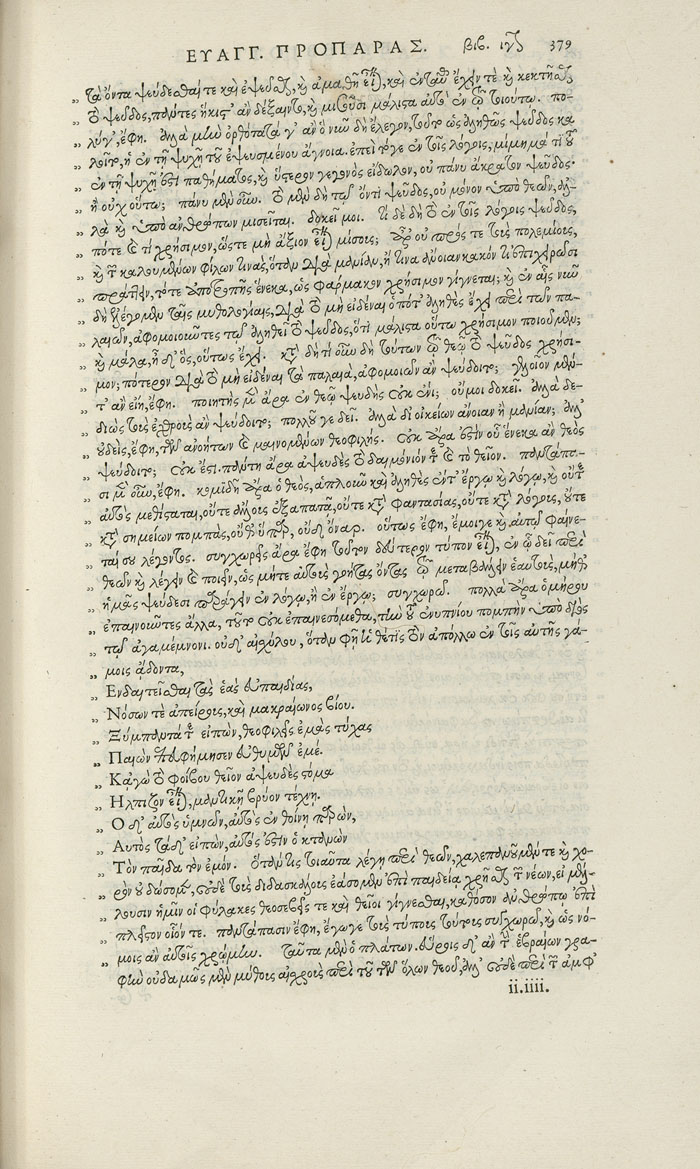 ΕΥΑΓΓ. ΠΡΟΠΑΡΑΣ. βιβ. ιγ 379
„ τὰ ὄντα ψεύδεσθαί τε καὶ ἐψεῦσθαι, καὶ ἀμαθῆ εἶναι, καὶ ἐνταῦθα ἔχειν τὲ καὶ κεκτῆσθαι
„ τὸ ψεῦδος, πάντες ἥκιστ' ἂν δέξαιντο, καὶ μισοῦσι μάλιστα αὐτὸ ἐν τῷ τοιούτῳ. πο-
„ λύγ', ἔφη. ἀλλὰ μὴν ὀρθότατά γ' ἂν ὃ νῦν δὴ ἔλεγον, τοῦτο ὡς ἀληθῶς ψεῦδος κα
„ λοῖτο, ἡ ἐν τῇ ψυχῇ τοῦ ἐψευσμένου ἄγνοια. ἐπεὶ τόγε ἐν τοῖς λόγοις, μίμημά τι τοῦ
„ ἐν τῇ ψυχῇ ἐστι παθήματος, καὶ ὕστερον γεγονὸς εἴδωλον, οὐ πάνυ ἄκρατον ψεῦδος.
„ ἢ οὐχ οὕτω; πάνυ μὲν οὖν. τὸ μὲν δὴ τῷ ὄντι ψεῦδος, οὐ μόνον ὑπὸ θεῶν, ἀλ-
„ λὰ καὶ ὑπὸ ἀνθρώπων μισεῖται. δοκεῖ μοι. τί δὲ δὴ τὸ ἐν τοῖς λόγοις ψεῦδος,
„ πότε καὶ τί χρήσιμον, ὥστε μὴ ἄξιον εἶναι μίσους; ἆρ' οὐ πρός τε τοὺς πολεμίους,
„ καὶ τῶν καλουμένων φίλων τινὰς, ὅταν διὰ μανίαν, ἤ τινα ἄνοιαν κακόν τι ἐπιχειρῶσι
„ πράττειν, τότε ἀποτροπῆς ἕνεκα, ὡς φάρμακον χρήσιμον γίγνεται; καὶ ἐν αἷς νῦν
„ δὴ ἐλέγομεν ταῖς μυθολογίαις, διὰ τὸ μὴ εἰδέναι ὅποτ' ἀληθὲς ἔχει περὶ τῶν πα-
„ λαιῶν, ἀφομοιοῦντες τῷ ἀληθεῖ τὸ ψεῦδος, ὅτι μάλιστα οὕτω χρήσιμον ποιοῦμεν;
„ καὶ μάλα, ἦ δ' ὃς, οὕτως ἔχει. κατὰ δὴ τί οὖν δὴ τούτων τῷ θεῷ τὸ ψεῦδος χρήσι-
„ μον; πότερον διὰ τὸ μὴ εἰδέναι τὰ παλαιὰ, ἀφομοιῶν ἂν ψεύδοιτο; γελοῖον μέν-
„ τ' ἂν εἴη, ἔφη. ποιητὴς μὲν ἄρα ἐν θεῷ ψευδὴς οὐκ ἔνι; οὔ μοι δοκεῖ. ἀλλὰ δε-
„ διὼς τοὺς ἐχθροὺς ἂν ψεύδοιτο; πολλοῦ γε δεῖ. ἀλλὰ δι' οἰκείων ἄνοιαν ἢ μανίαν; ἀλλ'
„ οὐδεὶς, ἔφη, τῶν ἀνοήτων καὶ μαινομένων θεοφιλής. οὐκ ἄρα ἐστὶν οὗ ἕνεκα ἂν θεὸς
„ ψεύδοιτο; οὐκ ἔστι. πάντη ἄρα ἀψευδὲς τὸ δαιμόνιόν τε καὶ τὸ θεῖον. πανταπα-
„ σι μὲν οὖν, ἔφη. κομιδῇ ἄρα ὁ θεὸς, ἁπλοῦν καὶ ἀληθὲς ἔν τ' ἔργῳ καὶ λόγῳ, καὶ οὔτε
„ αὐτὸς μεθίσταται, οὔτε ἄλλους ἐξαπατᾷ, οὔτε κατὰ φαντασίας, οὔτε κατὰ λόγους, οὔτε
„ κατὰ σημείων πομπὰς, οὔθ' ὕπαρ, οὐδ' ὄναρ. οὕτως ἔφη, ἔμοιγε καὶ αὐτῷ φαίνε-
„ ται σου λέγοντος. συγχωρεῖς ἄρα ἔφη τοῦτον δεύτερον τύπον εἶναι, ἐν ᾧ δεῖ περὶ
„ θεῶν καὶ λέγειν καὶ ποιεῖν, ὡς μήτε αὐτοὺς γόητας ὄντας τῷ μεταβάλλειν ἑαυτοὺς, μήθ'
„ ἡμᾶς ψεύδεσι παράγειν ἐν λόγῳ, ἢ ἐν ἔργῳ; συγχωρῶ. πολλὰ ἄρα ὁμήρου
„ ἐπαινοῦντες ἄλλα, τοῦτο οὐκ ἐπαινεσόμεθα, τὴν τοῦ ἐνυπνίου πομπὴν ὑπὸ διὸς
„ τῷ ἀγαμέμνονι. οὐδ' αἰσχύλου, ὅταν φῇ ἡ θέτις τὸν ἀπόλλω ἐν τοῖς αὐτῆς γά-
„ μοις ᾄδοντα,
„ Ενδατεῖσθαι τὰς ἑὰς εὐπαιδίας,
„ Νόσων τὲ ἀπείρους, καὶ μακραίωνος βίου.
„ Ξύμπαντά τε εἰπὼν, θεοφιλεῖς ἐμὰς τύχας
„ Παιῶν' ἐπευφήμησεν εὐθυμῶν ἐμέ.
„ Καγὼ τὸ φοίβου θεῖον ἀψευδὲς στόμα
„ Ηλπιζον εἶναι, μαντικῇ βρύον τέχνῃ.
„ Ο δ' αὐτὸς ὑμνῶν, αὐτὸς ἐν θοίνῃ παρὼν,
„ Αυτὸς τάδ' εἰπὼν, αὐτός ἐστιν ὁ κτανὼν
„ Τὸν παῖδα τὸν ἐμόν. ὅταν τις τοιαῦτα λέγῃ περὶ θεῶν, χαλεπανοῦμέν τε καὶ χο-
„ ρὸν οὐ δώσομεν, οὐδὲ τοὺς διδασκάλους ἐάσομεν ἐπὶ παιδείᾳ χρῆσθαι τῶν νέων, εἰ μέλ-
„ λουσιν ἡμῖν οἱ φύλακες θεοσεβεῖς τε καὶ θεῖοι γίγνεσθαι, καθόσον ἀνθρώπῳ ἐπὶ
„ πλεῖστον οἷόν τε. πανταπασιν ἔφη, ἔγωγε τοὺς τύπους τούτους συγχωρῶ, καὶ ὡς νό-
„ μοις ἂν αὐτοῖς χρῴμην. ταῦτα μὲν ὁ πλάτων. εὕροις δ' ἂν τὴν ἑβραίων γρα-
φὴν οὐδαμῶς μὲν μύθους αἰσχροὺς περὶ τοῦ τῶν ὅλων θεοῦ, ἀλλ' οὐδὲ περὶ τῶν ἀμφ'
ii.iiii.